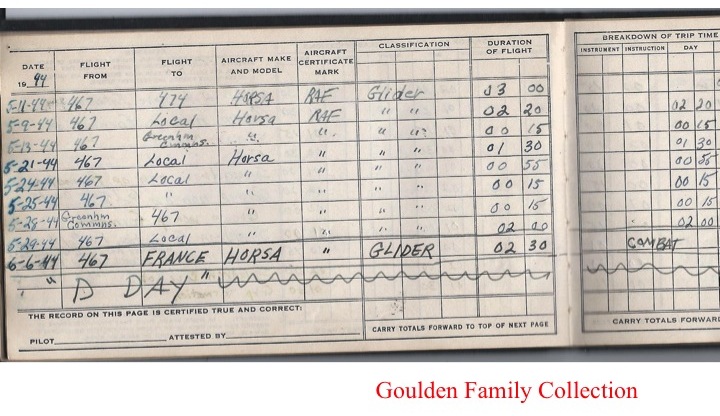 DATE 19 44 FLIGHT FROM FLIGHT TO AIRCRAFT MAKE AND MODEL AIRCRAFT CERTIFICATE MARK CLASSIFICATION DURATION OF FLIGHT BREAKDOWN OF TRIP TIME
INSTRUMENT INSTRUCTION DAY
467 474 HORSA RAF Glider 03 00
5-9-44 467 Local Horsa RAF " " 02 20 02 20
5-13-44 467 Greenhm Commns. " " " " 00 15 00 15
5-21-44 467 Local Horsa " " " 01 30 01 30
5-24-44 467 Local " " " " 00 55 00 55
5-25-44 467 " " " " " 00 15 00 15
5-28-44 Greenhm Commns. 467 " " " " 00 15 00 15
5-29-44 467 Local " " " " 02 00 02 00
6-6-44 467 FRANCE HORSA " GLIDER 02 30 COMBAT
" D DAY "
THE RECORD ON THIS PAGE IS CERTIFIED TRUE AND CORRECT:
PILOT ATTESTED BY CARRY TOTALS FORWARD TO TOP OF NEXT PAGE CARRY TOTALS FORWARD
Goulden Family Collection